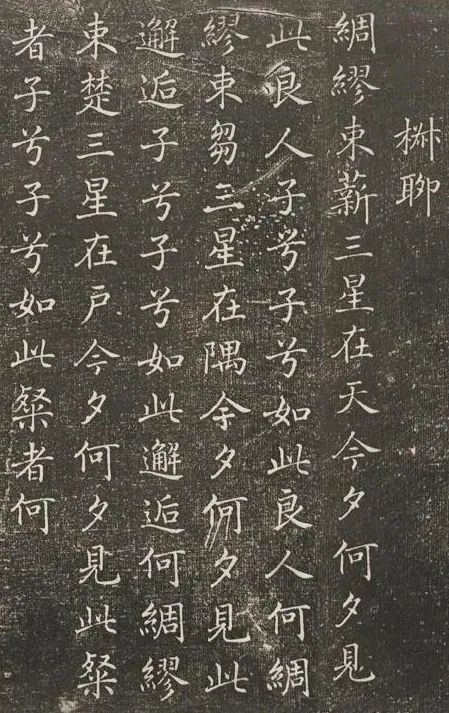 椒聊
綢繆束薪三星在天今夕何夕見
此良人子兮子兮如此良人何綢
繆束芻三星在隅今夕何夕見此
邂逅子兮子兮如此邂逅何綢繆
束楚三星在戶今夕何夕見此粲
者子兮子兮如此粲者何